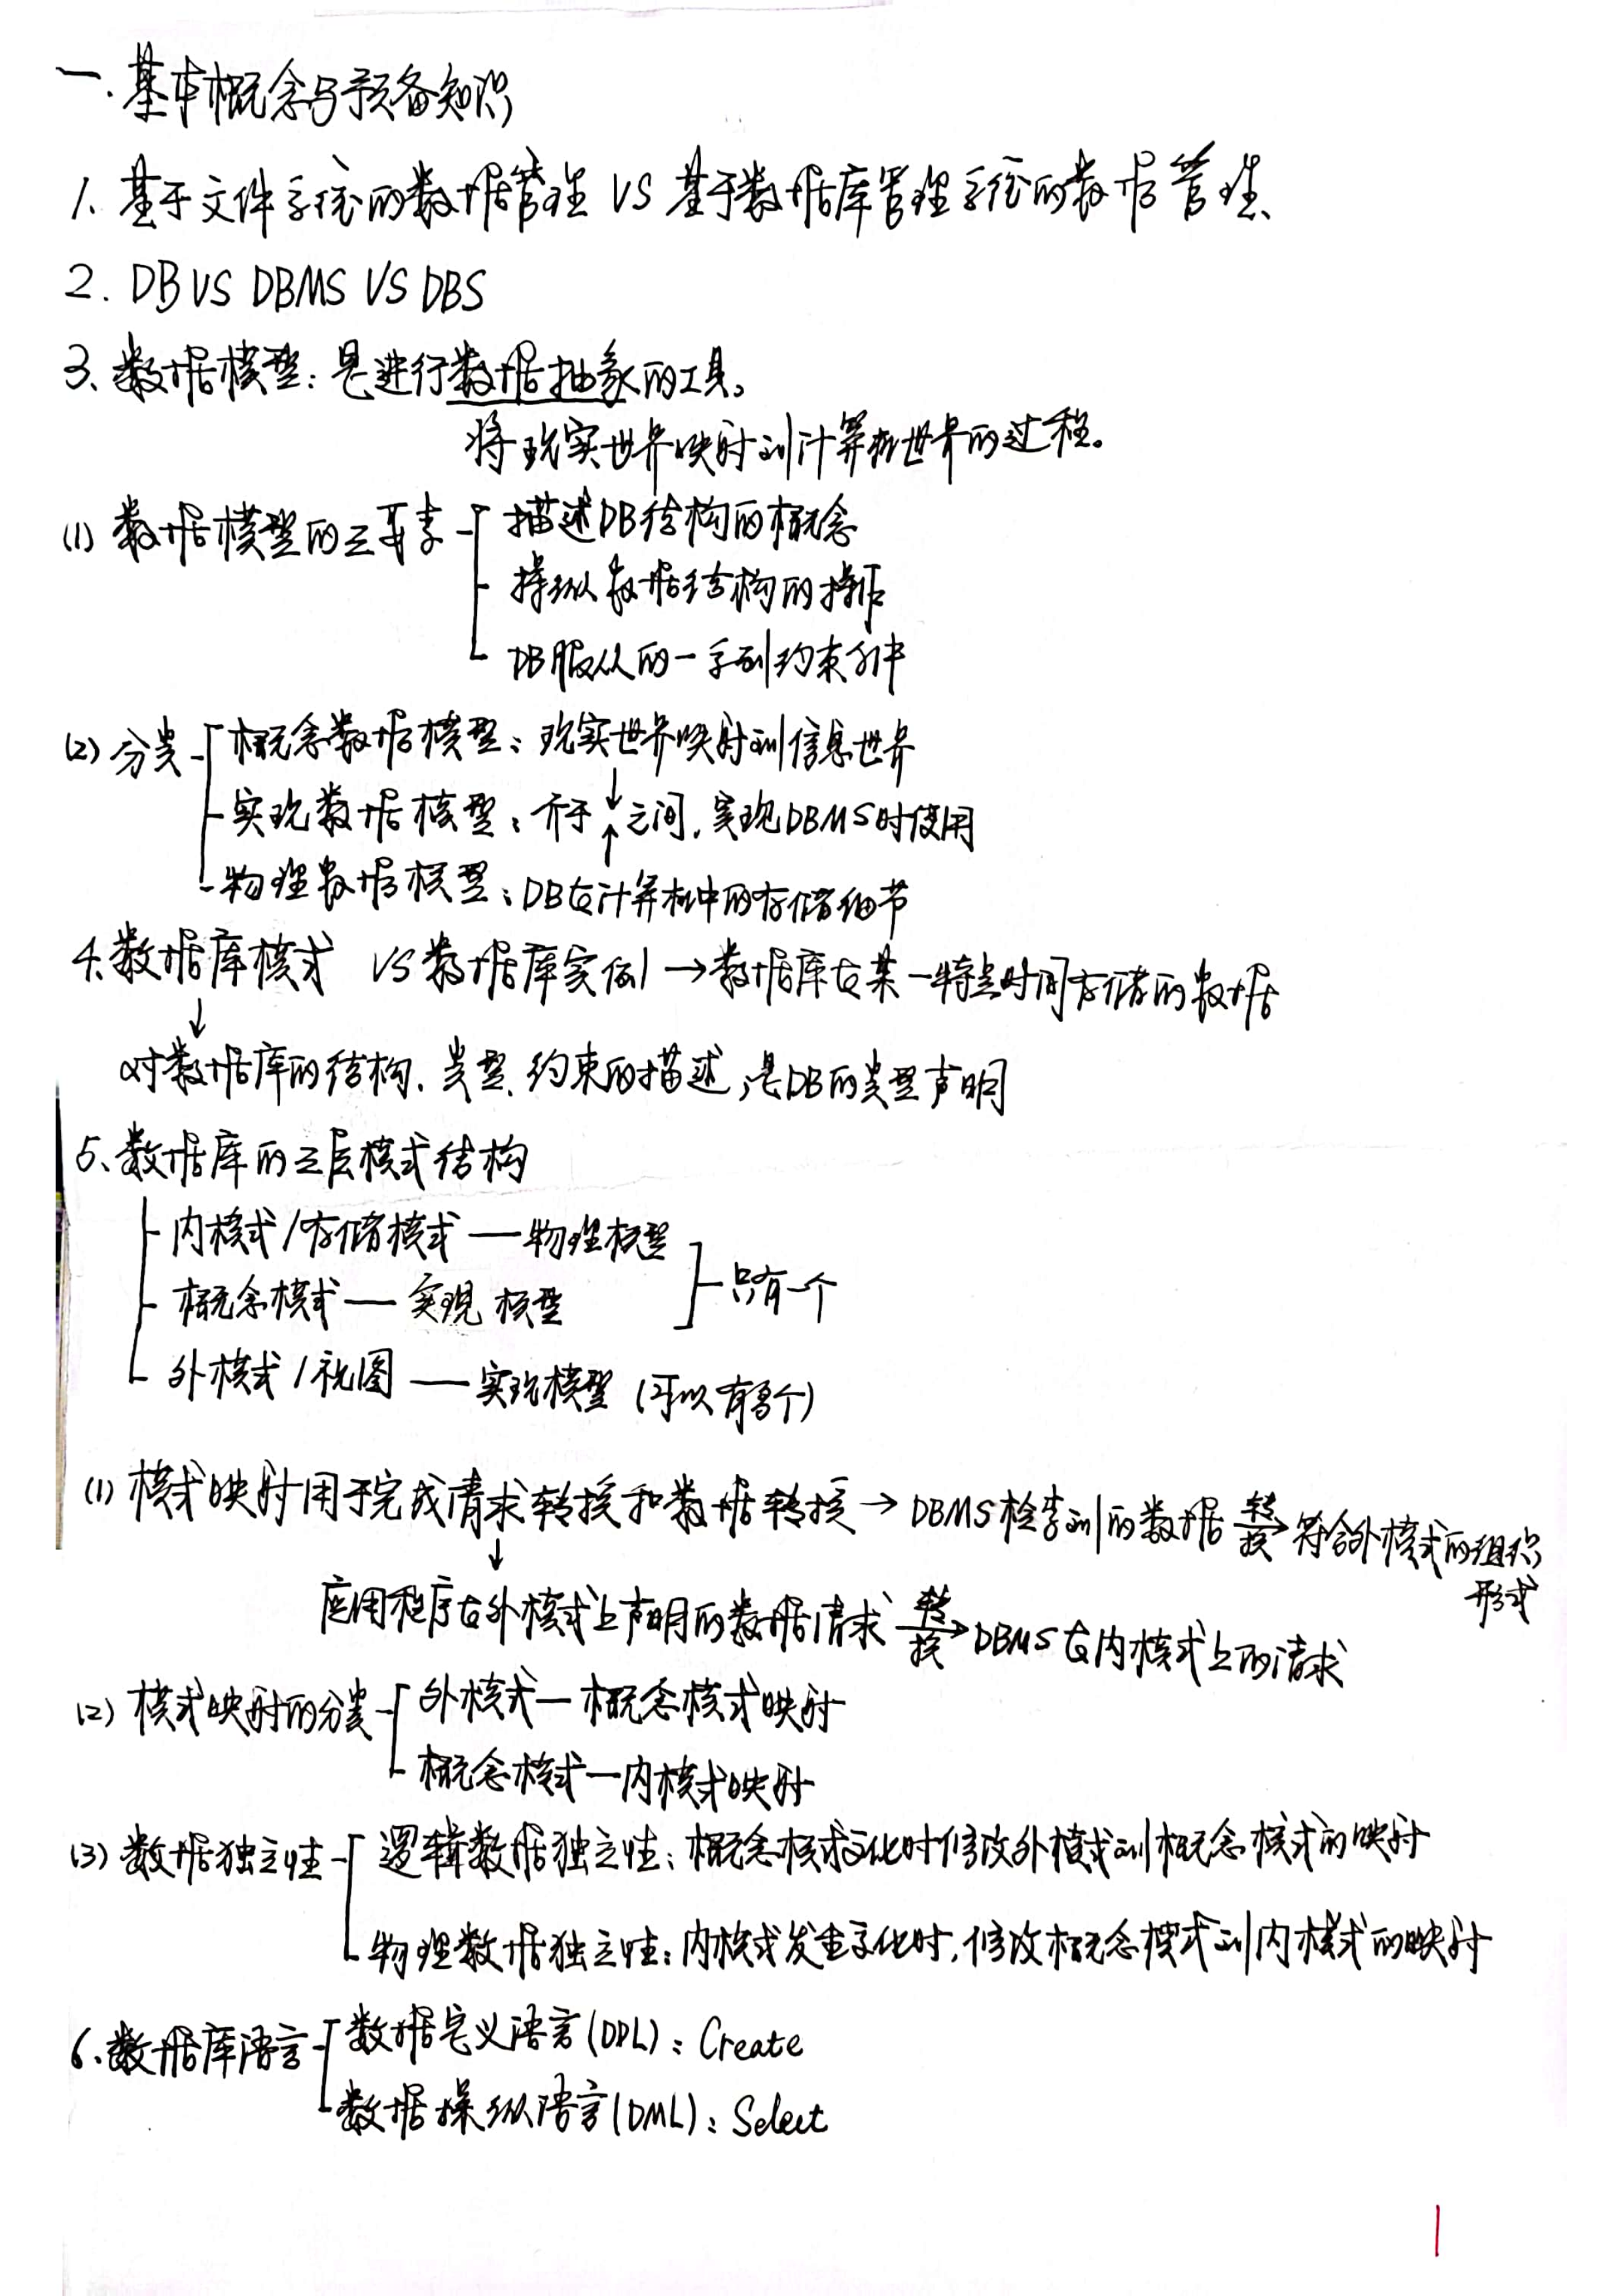 一.基本概念与预备知识
1.基于文件系统的数据管理 VS 基于数据库管理系统的数据管理
2. DB VS DBMS VS DBS
3、数据模型：是进行数据抽象的工具。
将现实世界映射到计算机世界的过程。
(1) 数据模型的三要素
描述DB结构的概念
操纵数据结构的操作
DB服从的一系列约束条件
(2) 分类
概念数据模型：现实世界映射到信息世界
实现数据模型：介于↓↑之间，实现DBMS时使用
物理数据模型：DB在计算机中的存储细节
4.数据库模式 VS 数据库实例→数据库在某一特点时间存储的数据
↓
对数据库的结构、类型、约束的描述，是DB的类型声明
5、数据库的三层模式结构
内模式/存储模式 — 物理模型
概念模式 — 实现模型
只有一个
外模式/视图 — 实现模型 (可以有多个)
(1) 模式映射用于完成请求转换和数据转换→DBMS检索到的数据 转换→ 符合外模式的组织形式
↓
应用程序在外模式上声明的数据请求 转换→ DBMS在内模式上的请求
(2) 模式映射的分类
外模式—概念模式映射
概念模式—内模式映射
(3) 数据独立性
逻辑数据独立性：概念模式变化时修改外模式到概念模式的映射
物理数据独立性：内模式发生变化时，修改概念模式到内模式的映射
6、数据库语言
数据定义语言(DDL)：Create
数据操纵语言(DML)：Select
1